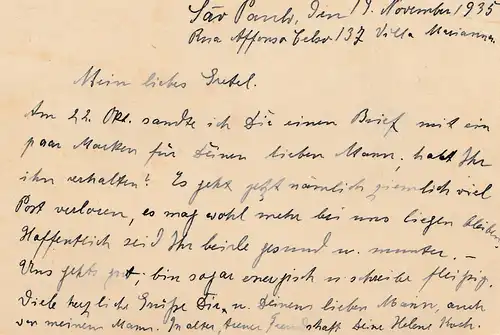 São Paulo, den 17. November 1935
Rua Affonso Celso 137 Villa Marianna
Mein liebes Gretel.
Am 22. Okt. sandte ich Dir einen Brief mit ein
paar Marken für Deinen lieben Mann, habt Ihr
ihn erhalten? Es geht jetzt nämlich ziemlich viel
Post verloren, es mag wohl mehr bei uns liegen bleiben.
Hoffentlich seid Ihr beide gesund u. munter. –
Uns gehts gut, bin sogar energisch u. schreibe fleißig.
Viele herzliche Grüße Dir, u. Deinem lieben Mann, auch
von meinem Mann. In alter, treuer Freundschaft Deine Helene